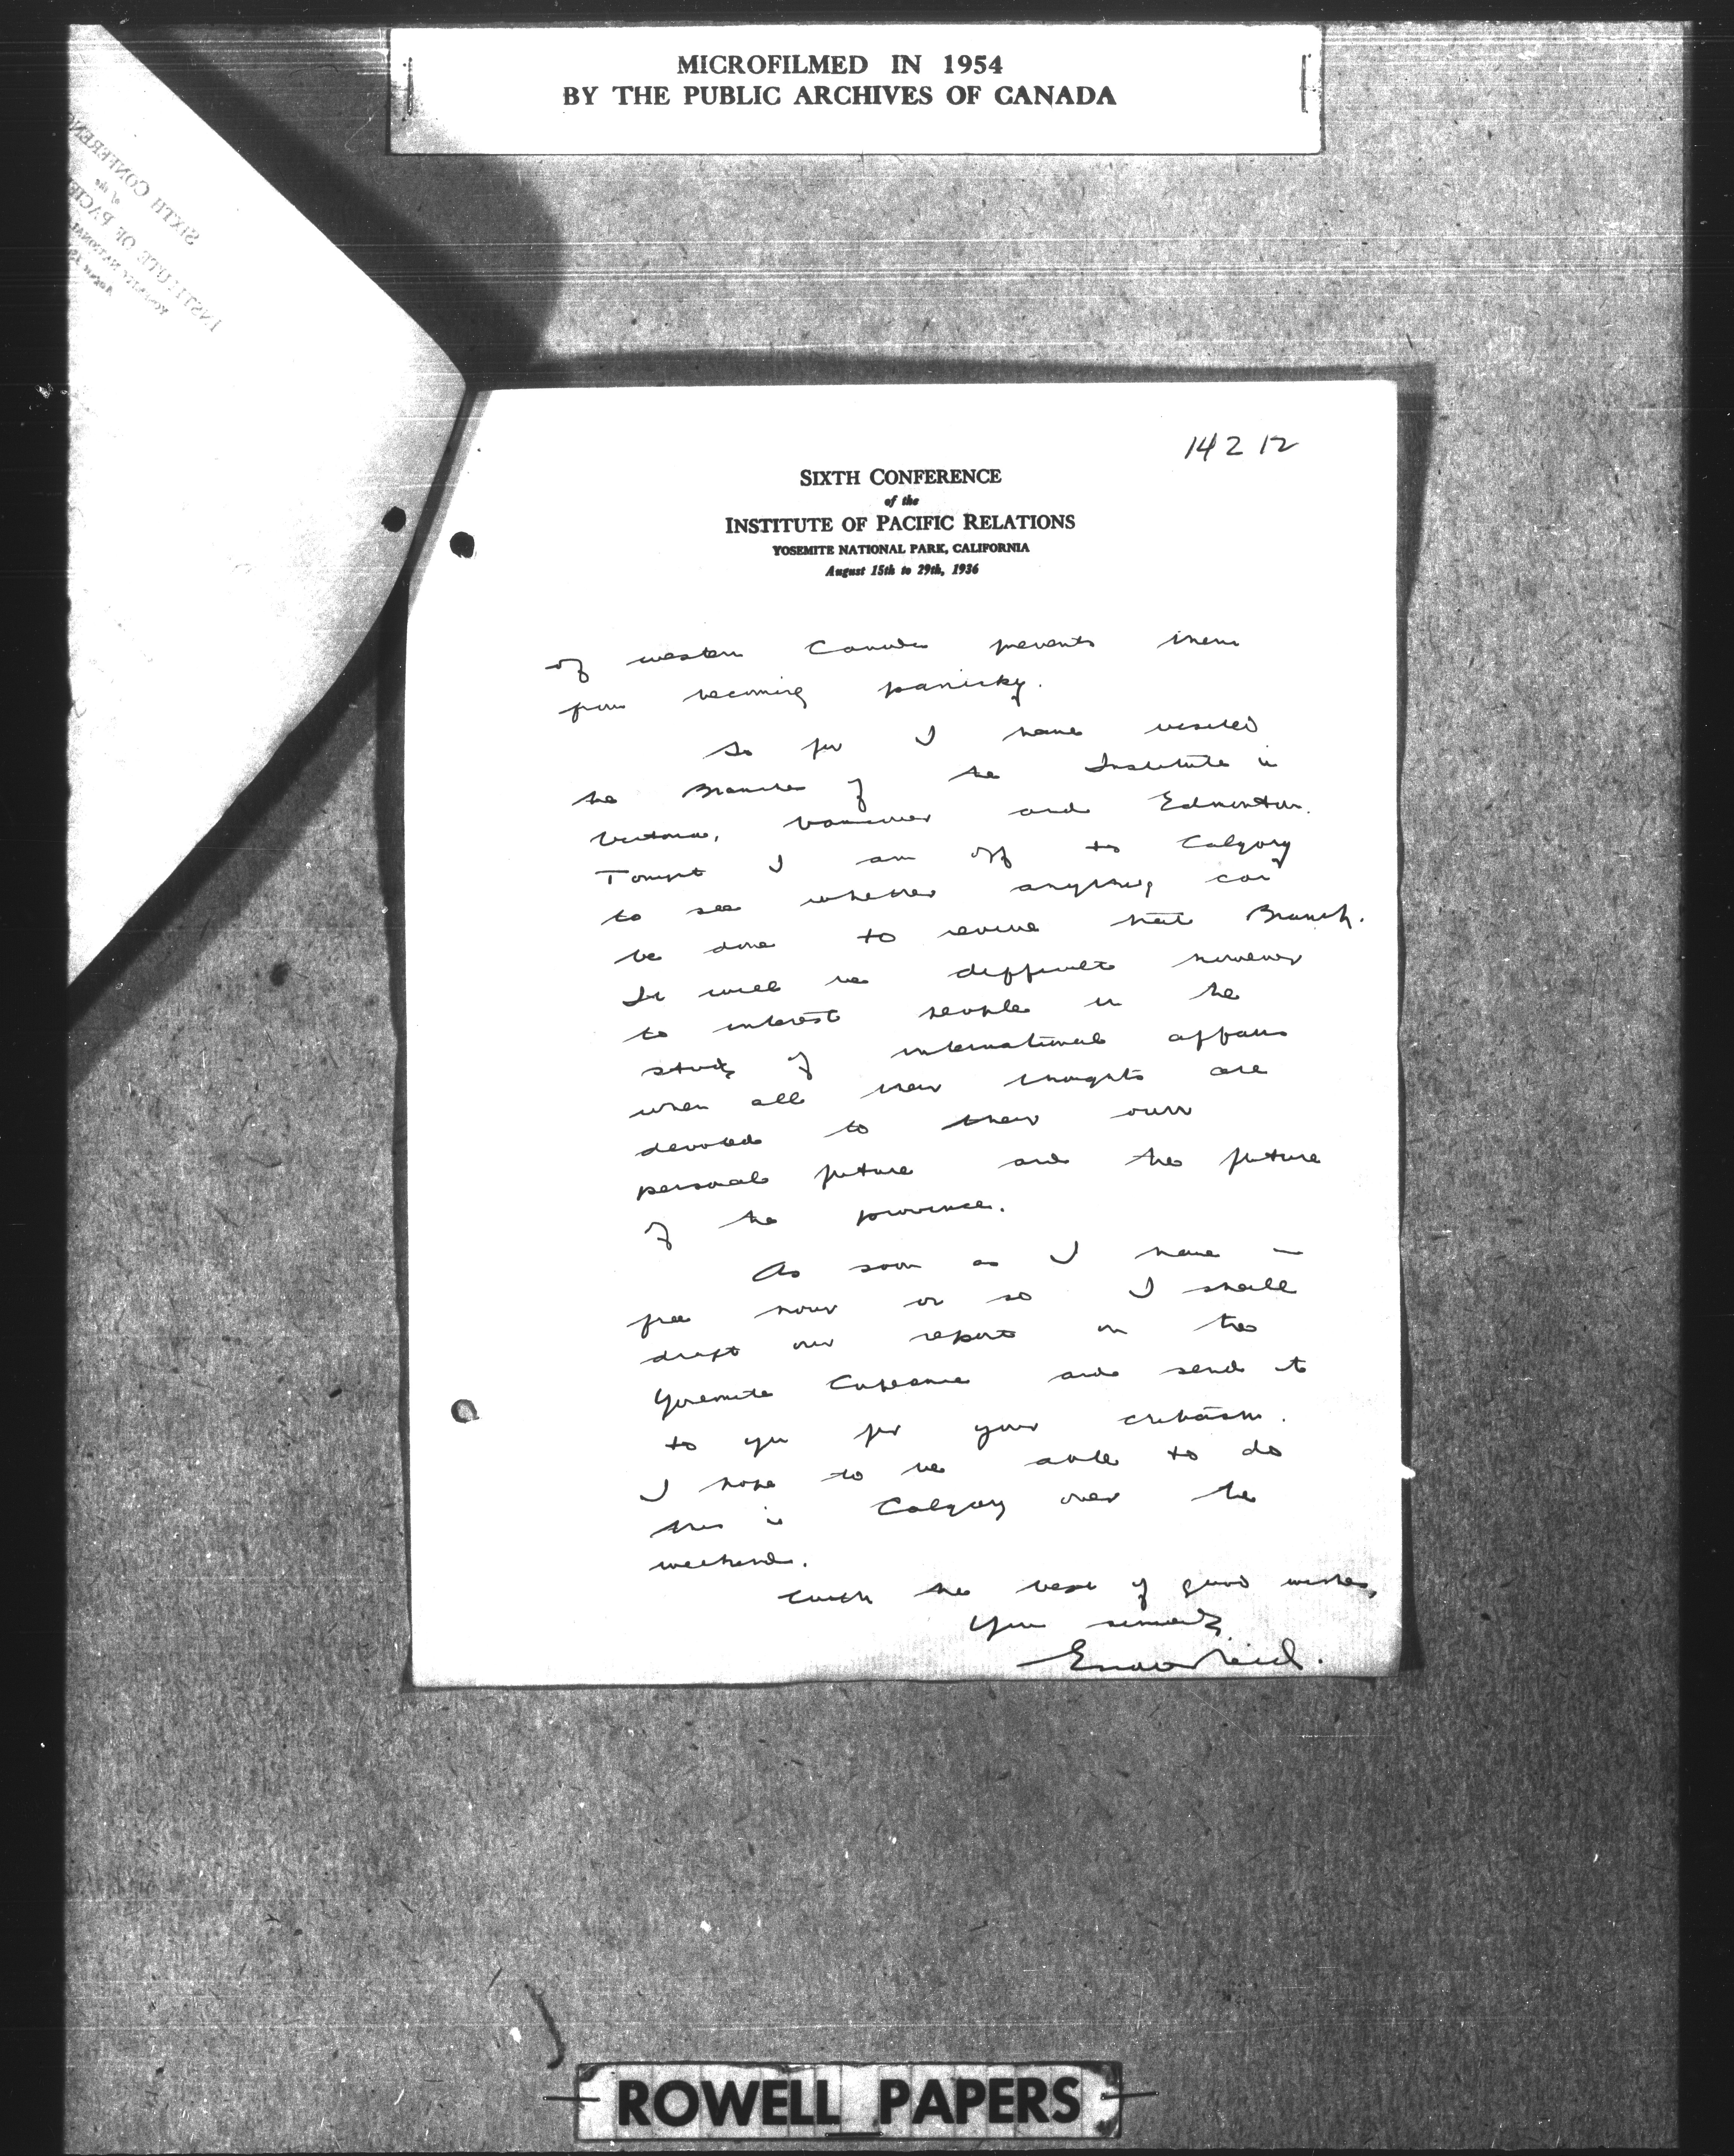 MICROFILMED IN 1954
BY THE PUBLIC ARCHIVES OF CANADA
14212
SIXTH CONFERENCE
of the
INSTITUTE OF PACIFIC RELATIONS
YOSEMITE NATIONAL PARK, CALIFORNIA
August 15th to 29th, 1936
of western Canada prevents them
from becoming panicky.
So far I have visited
the Branches of the Institute in
Victoria, Vancouver and Edmonton.
Tonight I am off to Calgary
to see whether anything can
be done to revive that Branch.
It will be difficult however
to interest people in the
study of international affairs
when all their thoughts are
devoted to their own
personal future and the future
of the province.
As soon as I have a
free hour or so I shall
draft our report on the
Yosemite Conference and send it
to you for your criticism.
I hope to be able to do
this in Calgary over the
weekend.
With the best of good wishes,
Yours sincerely
Escott Reid.
ROWELL PAPERS